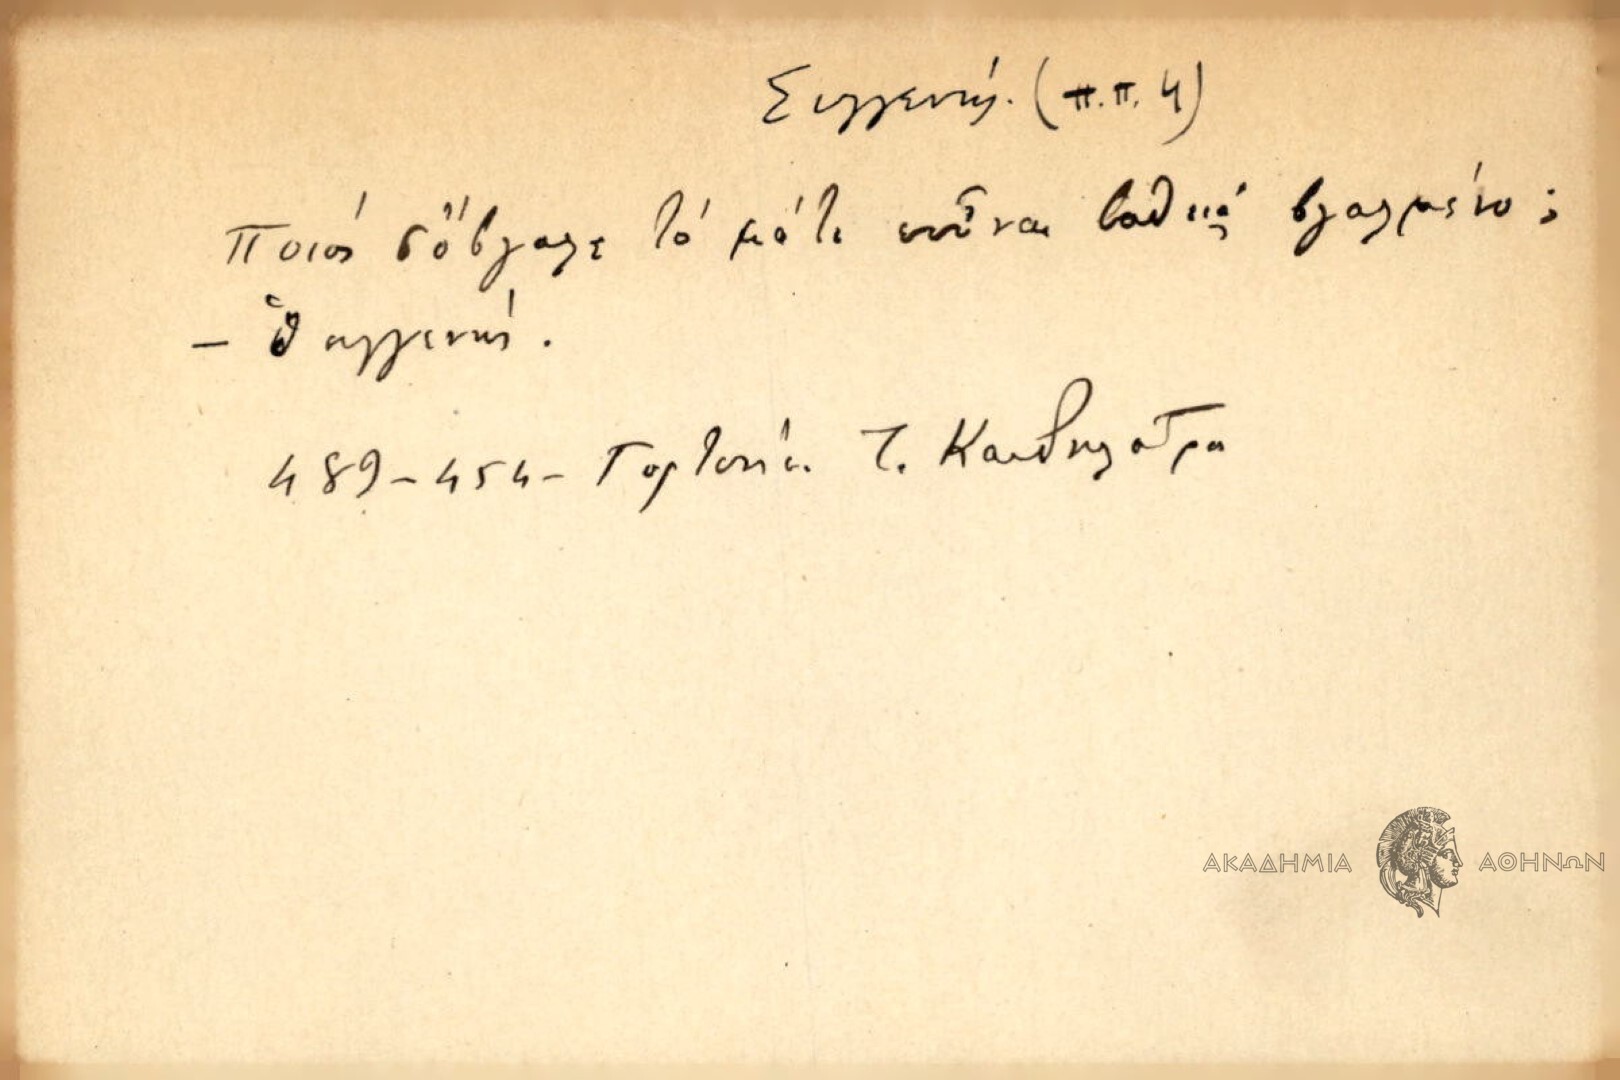 Συγγενής. (π.π. 4)
Ποιός σὄβγαλε τό μάτι ποὖναι βαθειά βγαλμένο;
– Ὁ συγγενής.
489-454- Γορτυνία Τ. Κανδηλώρα
ΑΚΑΔΗΜΙΑ ΑΘΗΝΩΝ